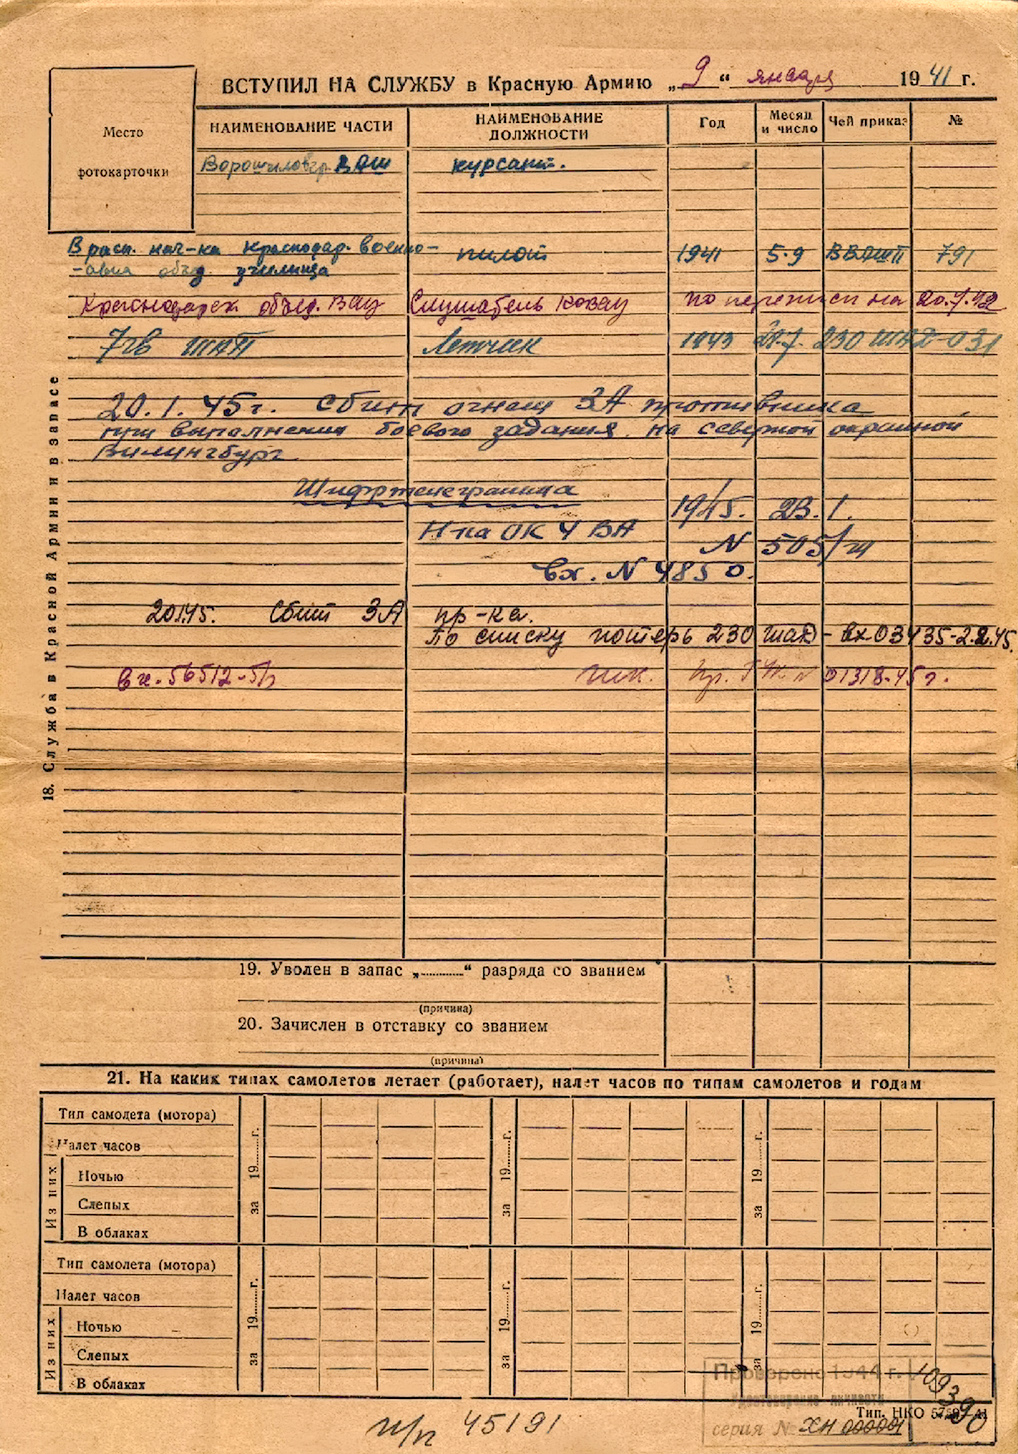 ВСТУПИЛ НА СЛУЖБУ в Красную Армию „9“ января 1941 г.
Место
фотокарточки
НАИМЕНОВАНИЕ ЧАСТИ НАИМЕНОВАНИЕ ДОЛЖНОСТИ Год Месяц и число Чей приказ №
Ворошиловгр. ВАШ курсант.
В расп. нач-ка Краснодар. военно- пилот 1941 5.9 ВВАШП 791
-авиа объед. училища
Краснодарск объед. ВАУ Слушатель КОВАУ по переписи на 20.7.42
7 гв ШАП Летчик 1943 230 ШАД 031
20.1.45г. сбит огнем ЗА противника
при выполнении боевого задания на северной окраиной
Вилингбург
Шифртелеграмма
1945. 23.1.
Н-ка ОК 4 ВА N 505/ш
вх. N 4850.
20.1.45. Сбит ЗА пр-ка.
По списку потерь 230 шад - вх 03435-2.2.45.
Вх. 56512-5/г 01318-45г.
18. Служба в Красной Армии и в запасе
19. Уволен в запас „..........“ разряда со званием
(причина)
20. Зачислен в отставку со званием
(причина)
21. На каких типах самолетов летает (работает), налет часов по типам самолетов и годам
Тип самолета (мотора)
Налет часов
Из них
Ночью
Слепых
В облаках
за 19......г.
за 19......г.
за 19......г.
Тип самолета (мотора)
Налет часов
Из них
Ночью
Слепых
В облаках
за 19......г.
за 19......г.
за 19......г.
Проверено 1944 г.
Удостоверение личности
серия № ХН 000001
109390
Тип. НКО
п/п 45191